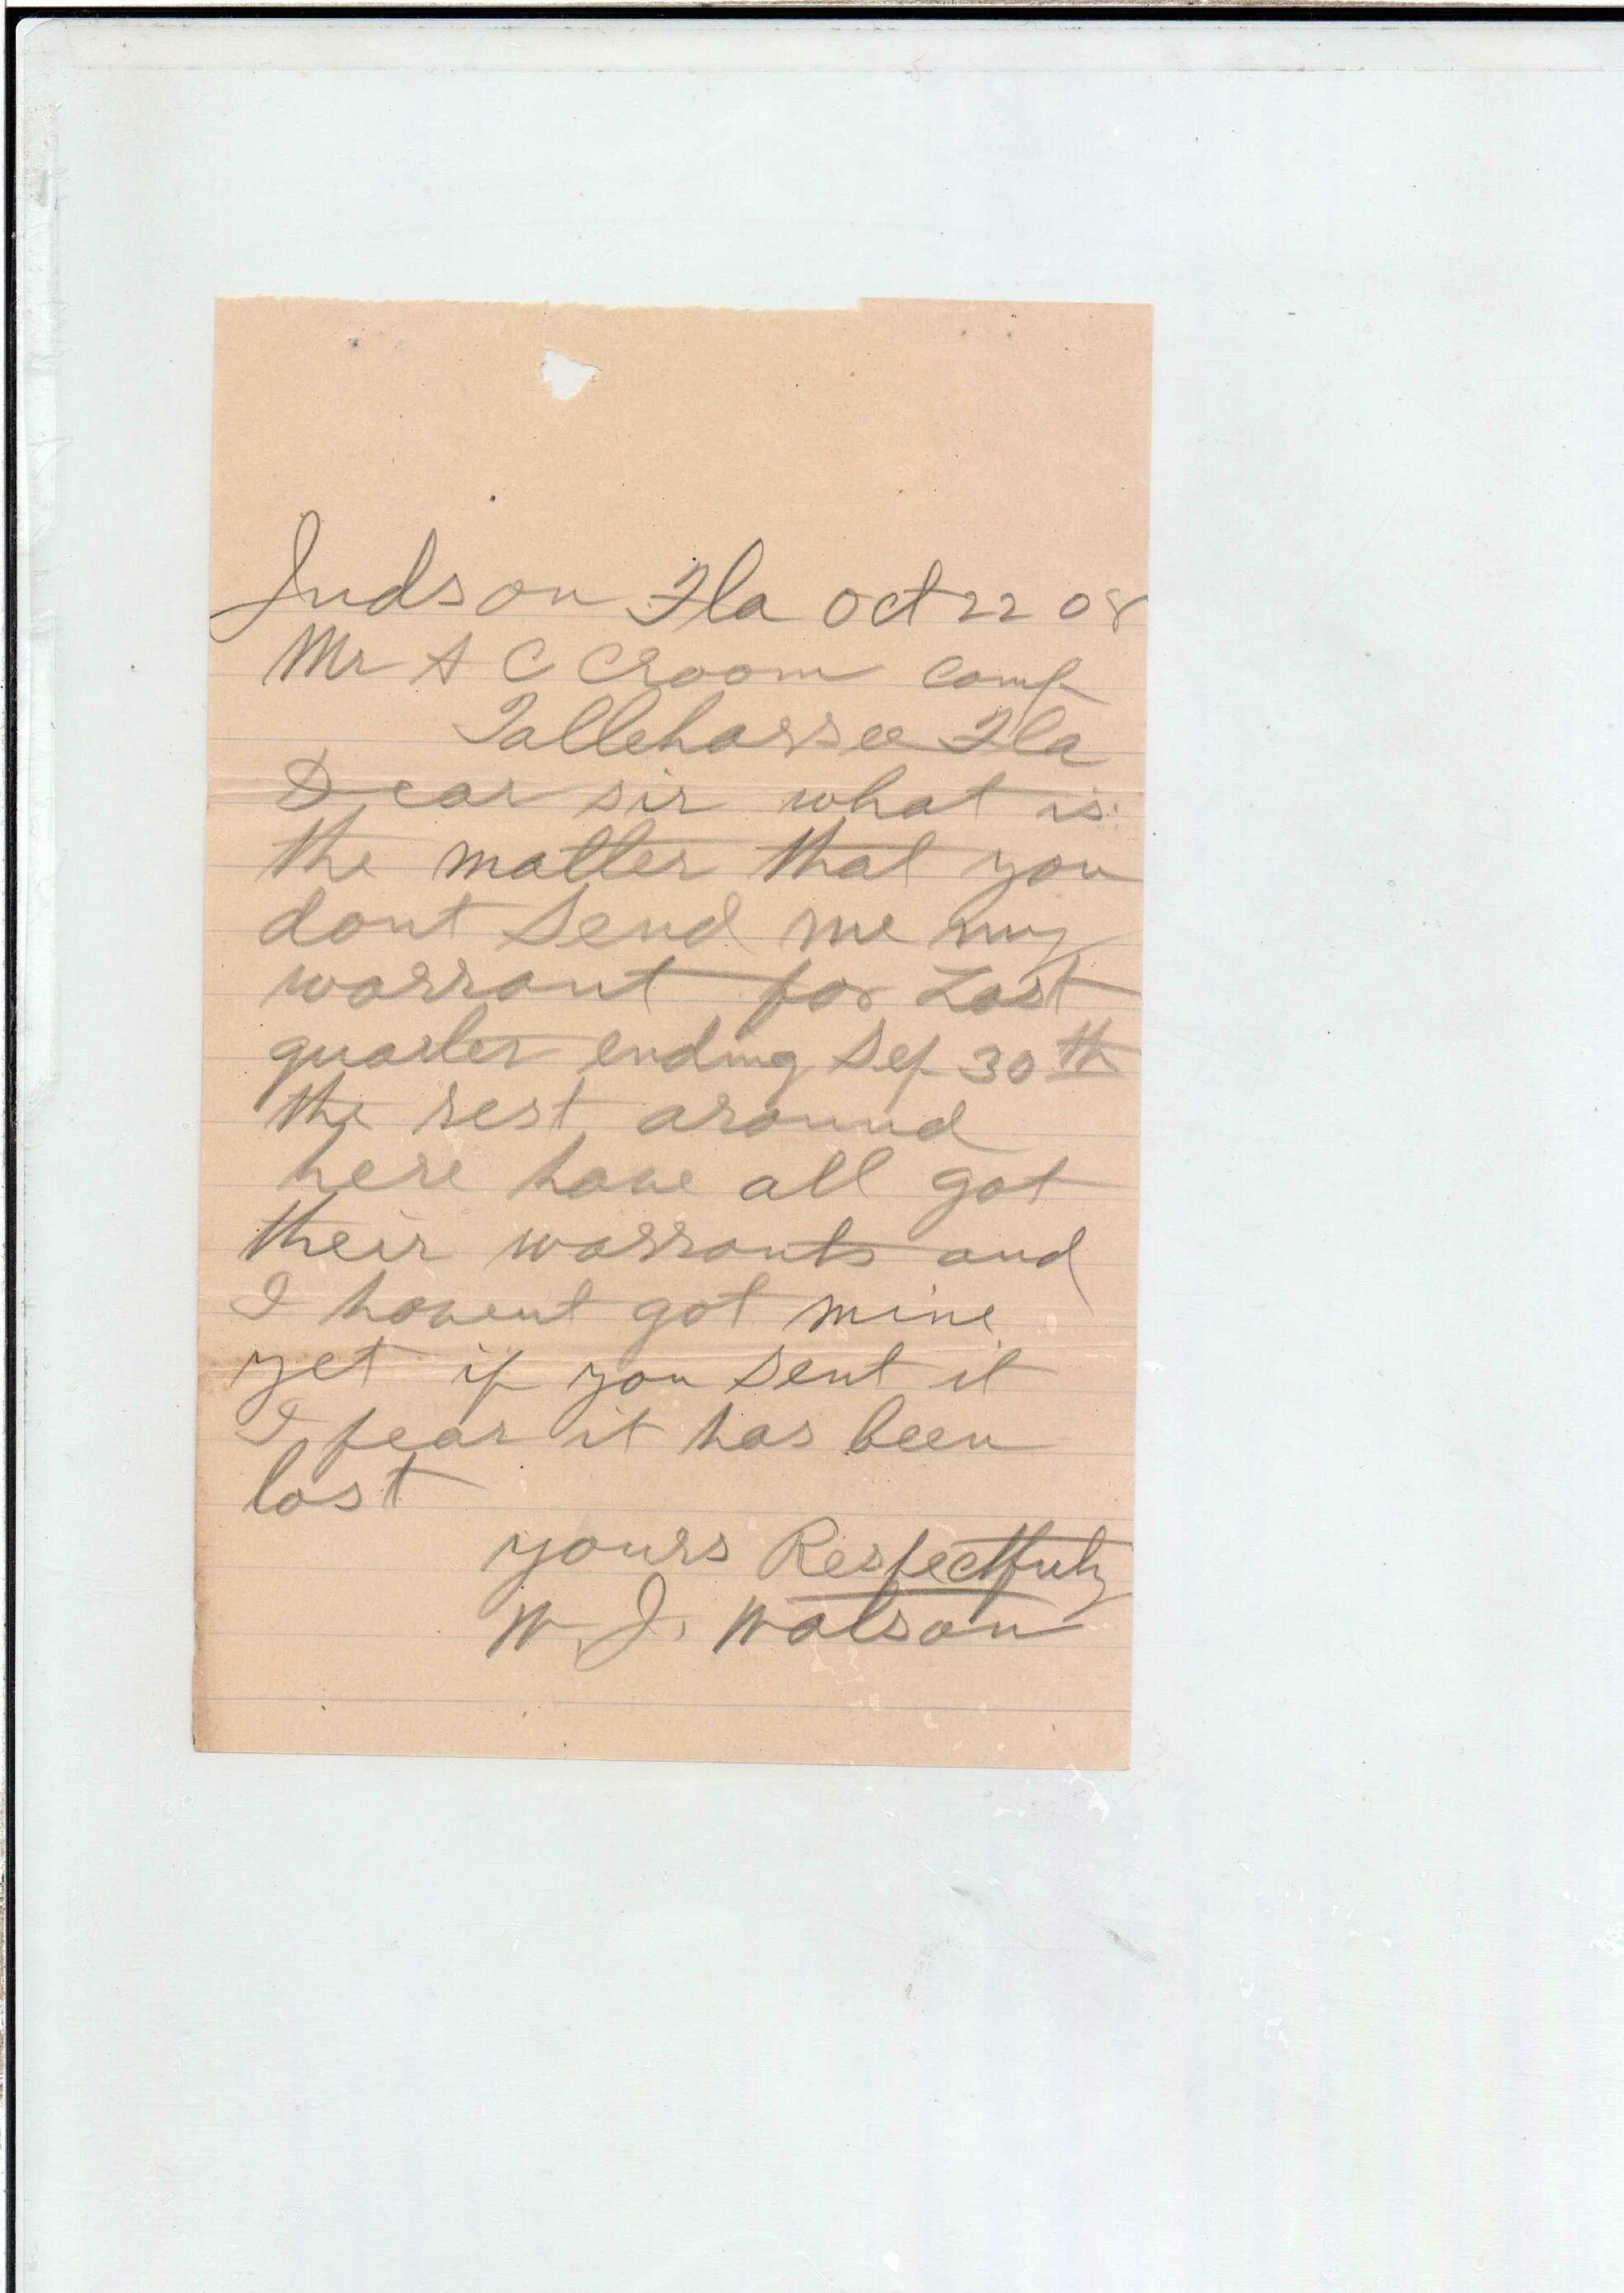 Judson Fla Oct 22 08
Mr A C Croom Comp
Tallehassee Fla
Dear sir what is
the matter that you
dont send me my
warrant for Last
quarter ending Sep 30th
the rest around
here have all got
their warrants and
I havent got mine
yet if you sent it
I fear it has been
lost
yours Respectfuly
W. J. Watson